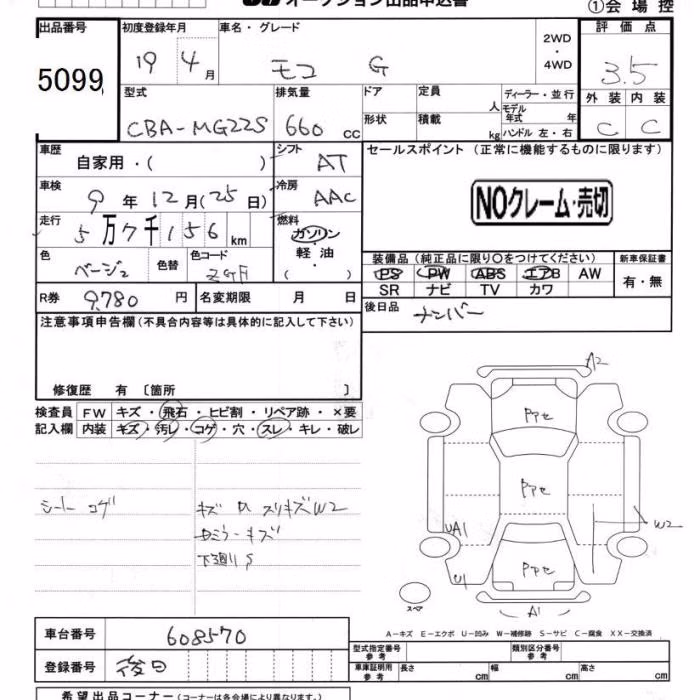 オークション出品申込書
①会場控
出品番号
5099
初度登録年月
19 4月
車名・グレード
モコ G
2WD
・
4WD
評価点
3.5
型式
CBA-MG22S
排気量
660 cc
ドア
形状
定員 人
積載 kg
ディーラー・並行
モデル年式 年
ハンドル 左・右
外装 内装
C C
車歴
自家用・( )
シフト
AT
セールスポイント(正常に機能するものに限ります)
車検
9年12月(25日)
冷房
AAC
NOクレーム・売切
走行
5万7千156km
燃料
ガソリン
・
軽油
( )
色
ベージュ
色替
色コード
装備品(純正品に限り〇をつけてください)
新車保証書
PS PW ABS エアB AW
有・無
SR ナビ TV カワ
R券 9,780円
名変期限 月 日
後日品
ナンバー
注意事項申告欄(不具合内容等は具体的に記入して下さい)
修復歴 有〔箇所 〕
検査員記入欄
FW キズ・飛石・ヒビ割・リペア跡・×要
内装 キズ・汚レ・コゲ・穴・スレ・キレ・破レ
シート コゲ
キズ
スリキズW2
キズ
下廻りS
A2
W2
UA1
U1
A1
スペア
A-キズ E-エクボ U-凹み W-補修跡 S-サビ C-腐食 XX-交換済
車台番号
608570
登録番号
後日
型式指定番号
参考
類別区分番号
参考
車庫証明用
参考
長さ cm
幅 cm
高さ cm
希望出品コーナー(コーナーは各会場により異なります)